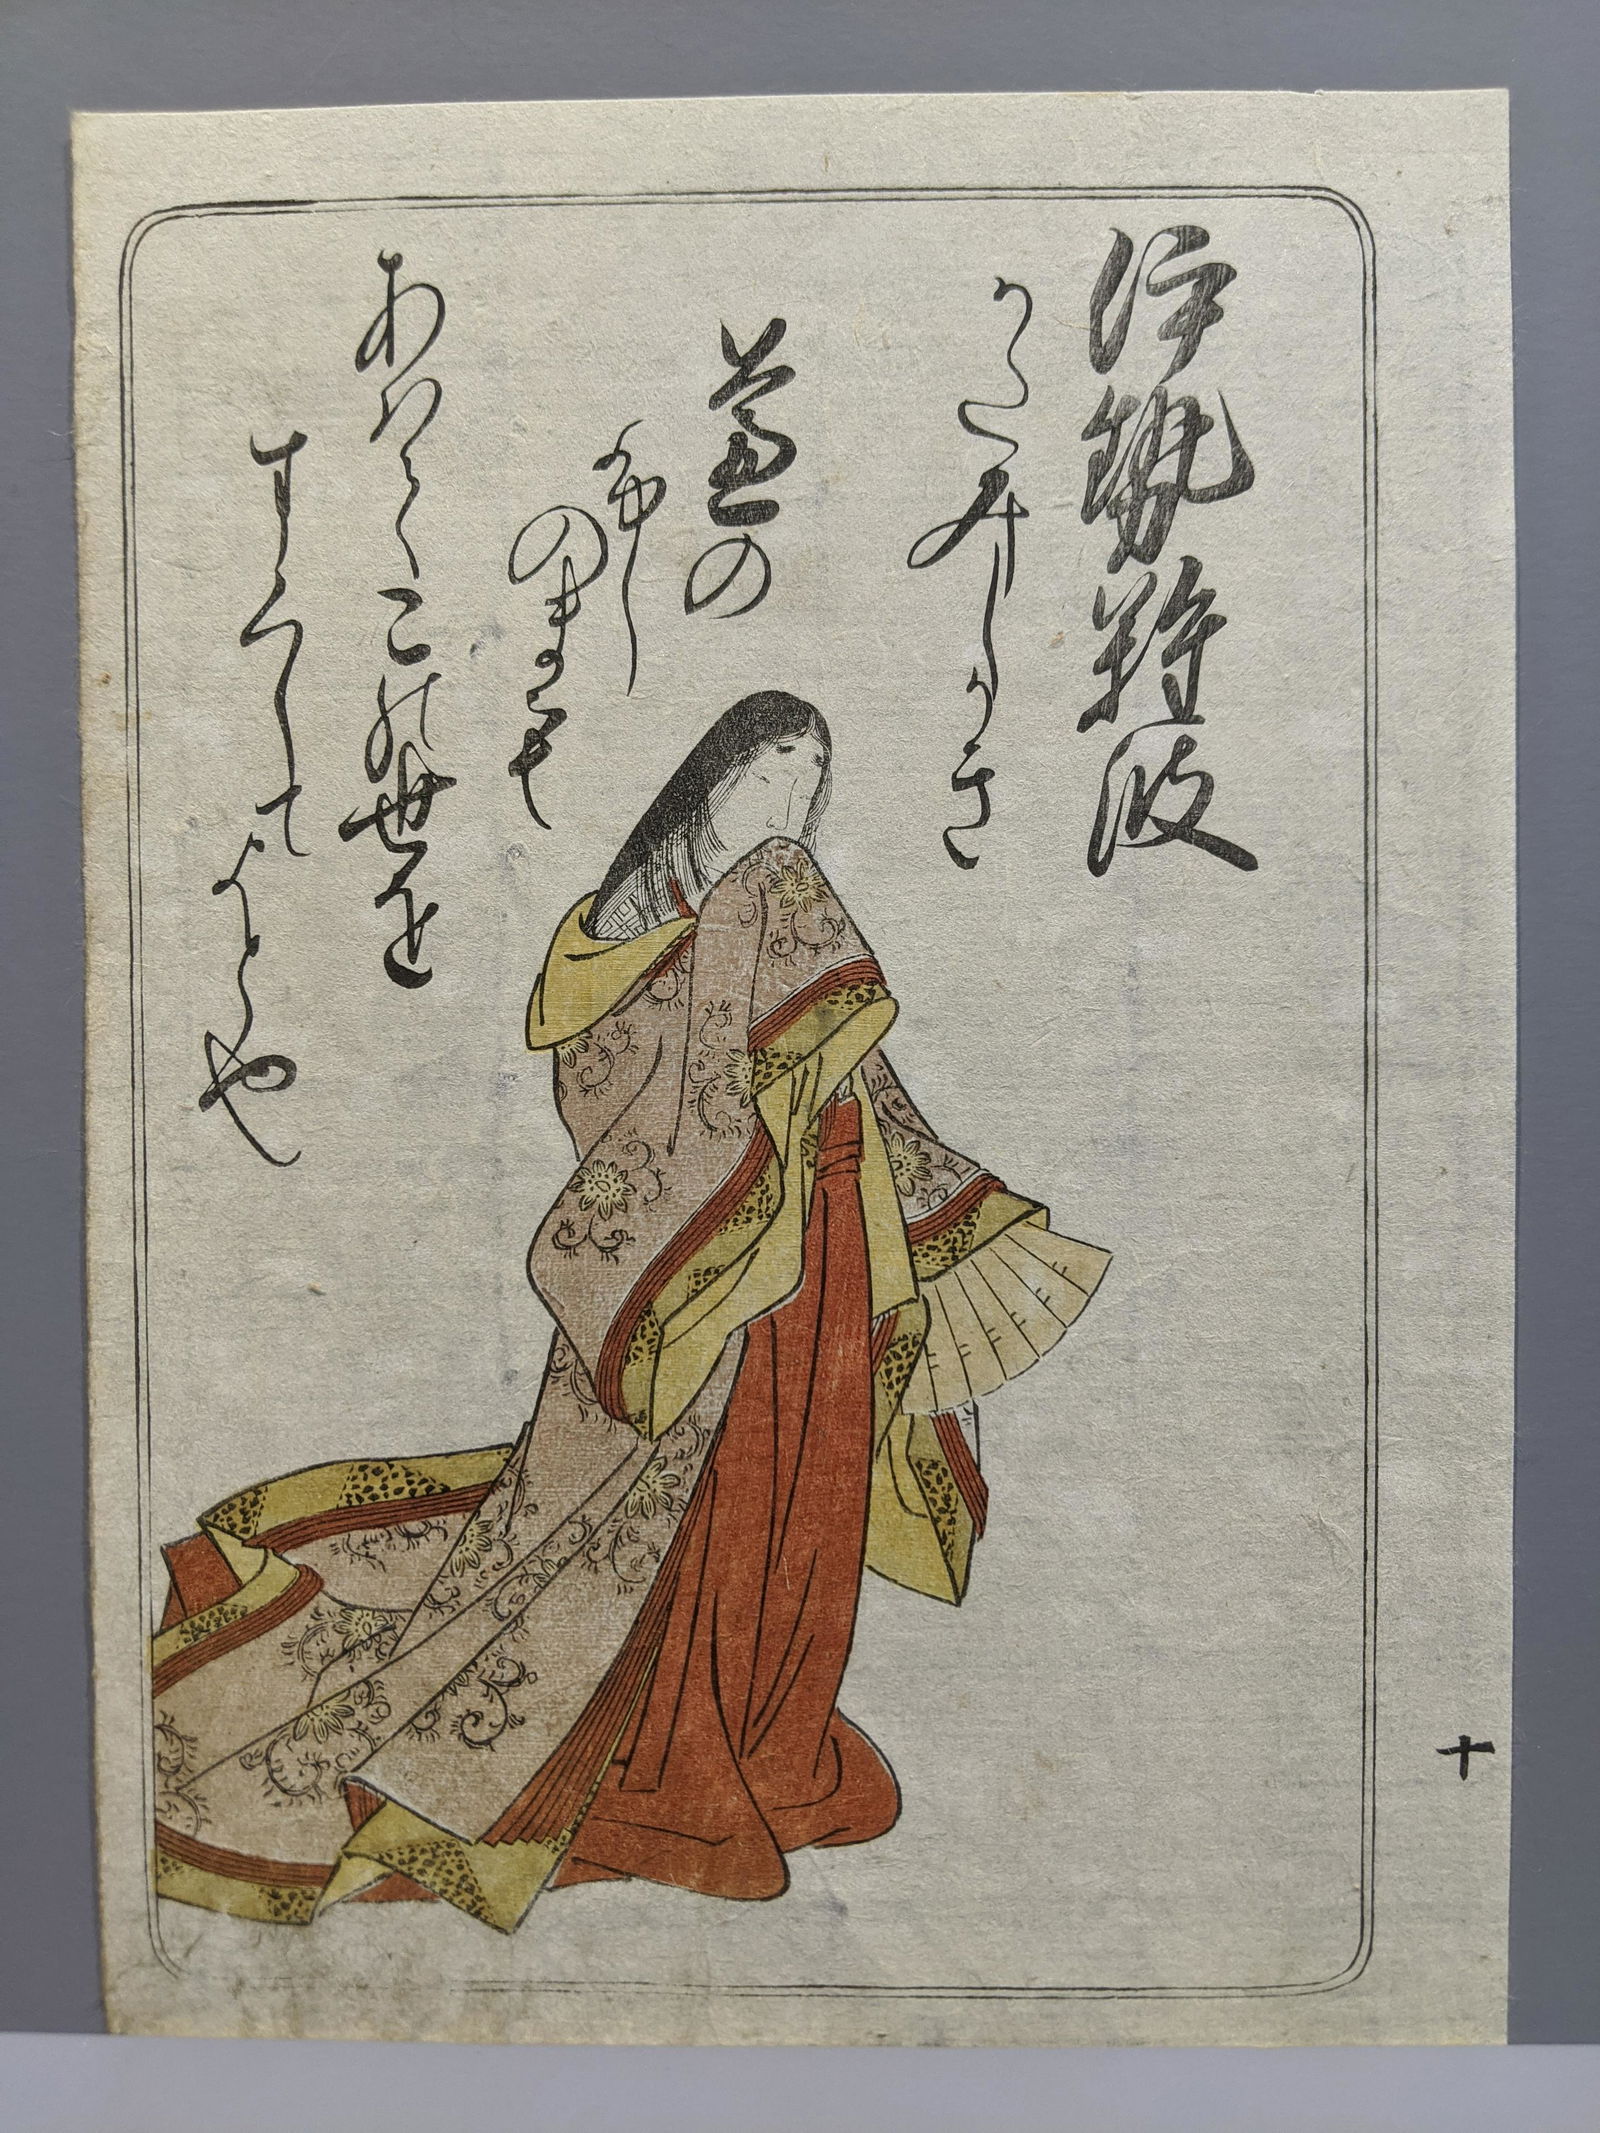 伊勢難波
かたみしかき
蘆の
ふし
のまも
あはてこの世を
すくしてよとや
十